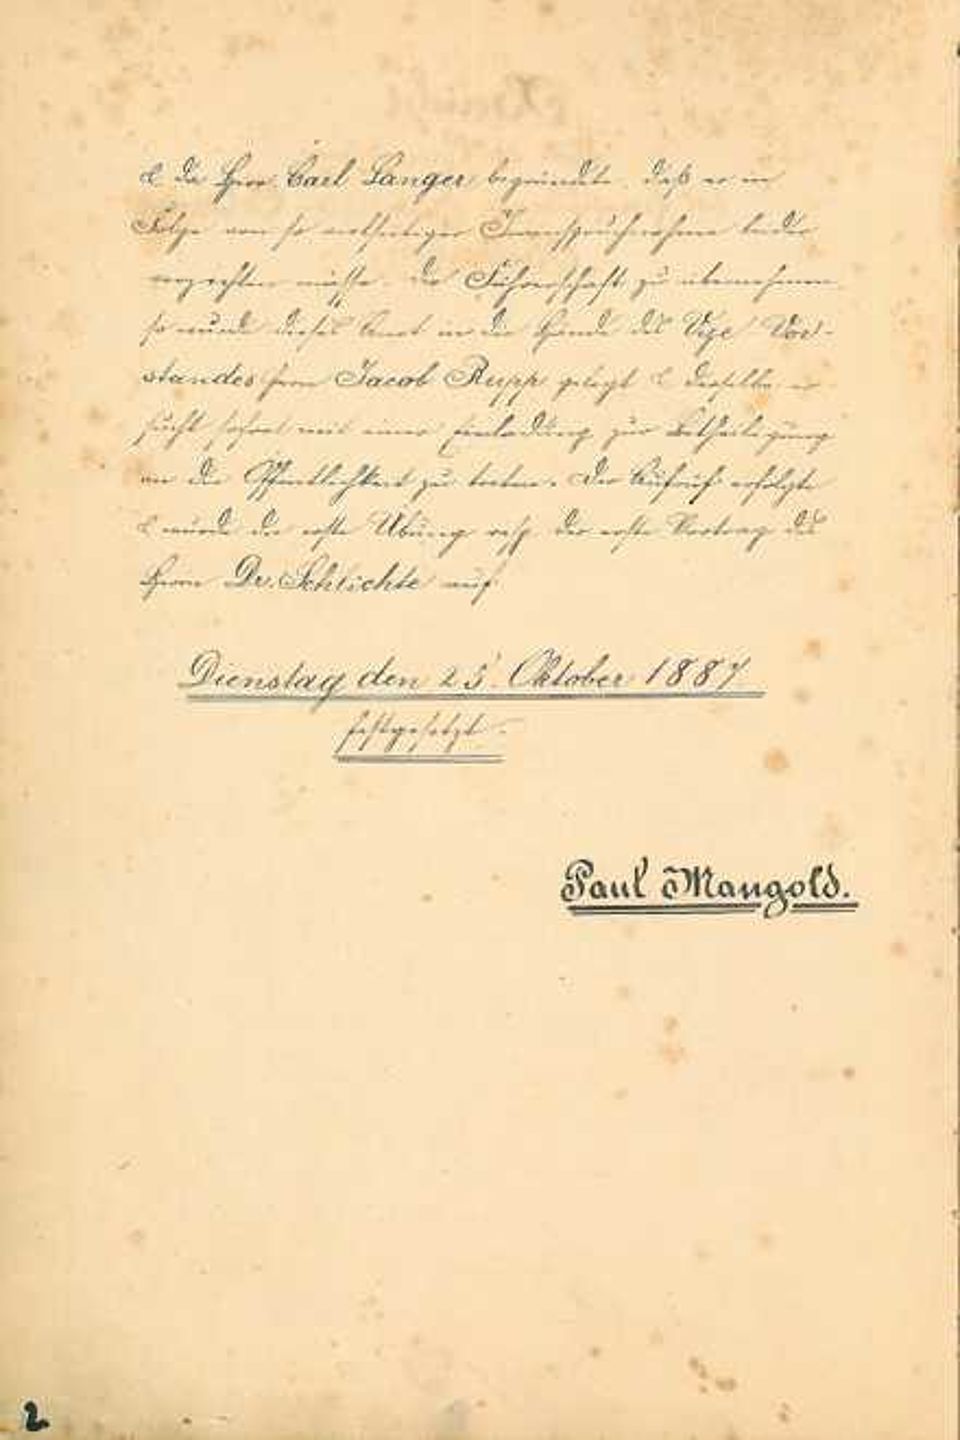 & da Herr Carl Langer begründete, daß er in
Folge von so vielseitiger Inanspruchnahme leider
verzichten müsse die Führerschaft zu übernehmen
so wurde dieses Amt in die Hände des Vize Vor-
standes Herrn Jacob Rupp gelegt & derselbe er-
sucht sofort mit einer Einladung zur Betheiligung
an die Öffentlichkeit zu treten. Der Aufruf erfolgte
& wurde die erste Übung resp. der erste Vortrag des
Herrn Dr. Schlichte auf
Dienstag den 25. Oktober 1887
festgesetzt.
Paul Mangold.
2